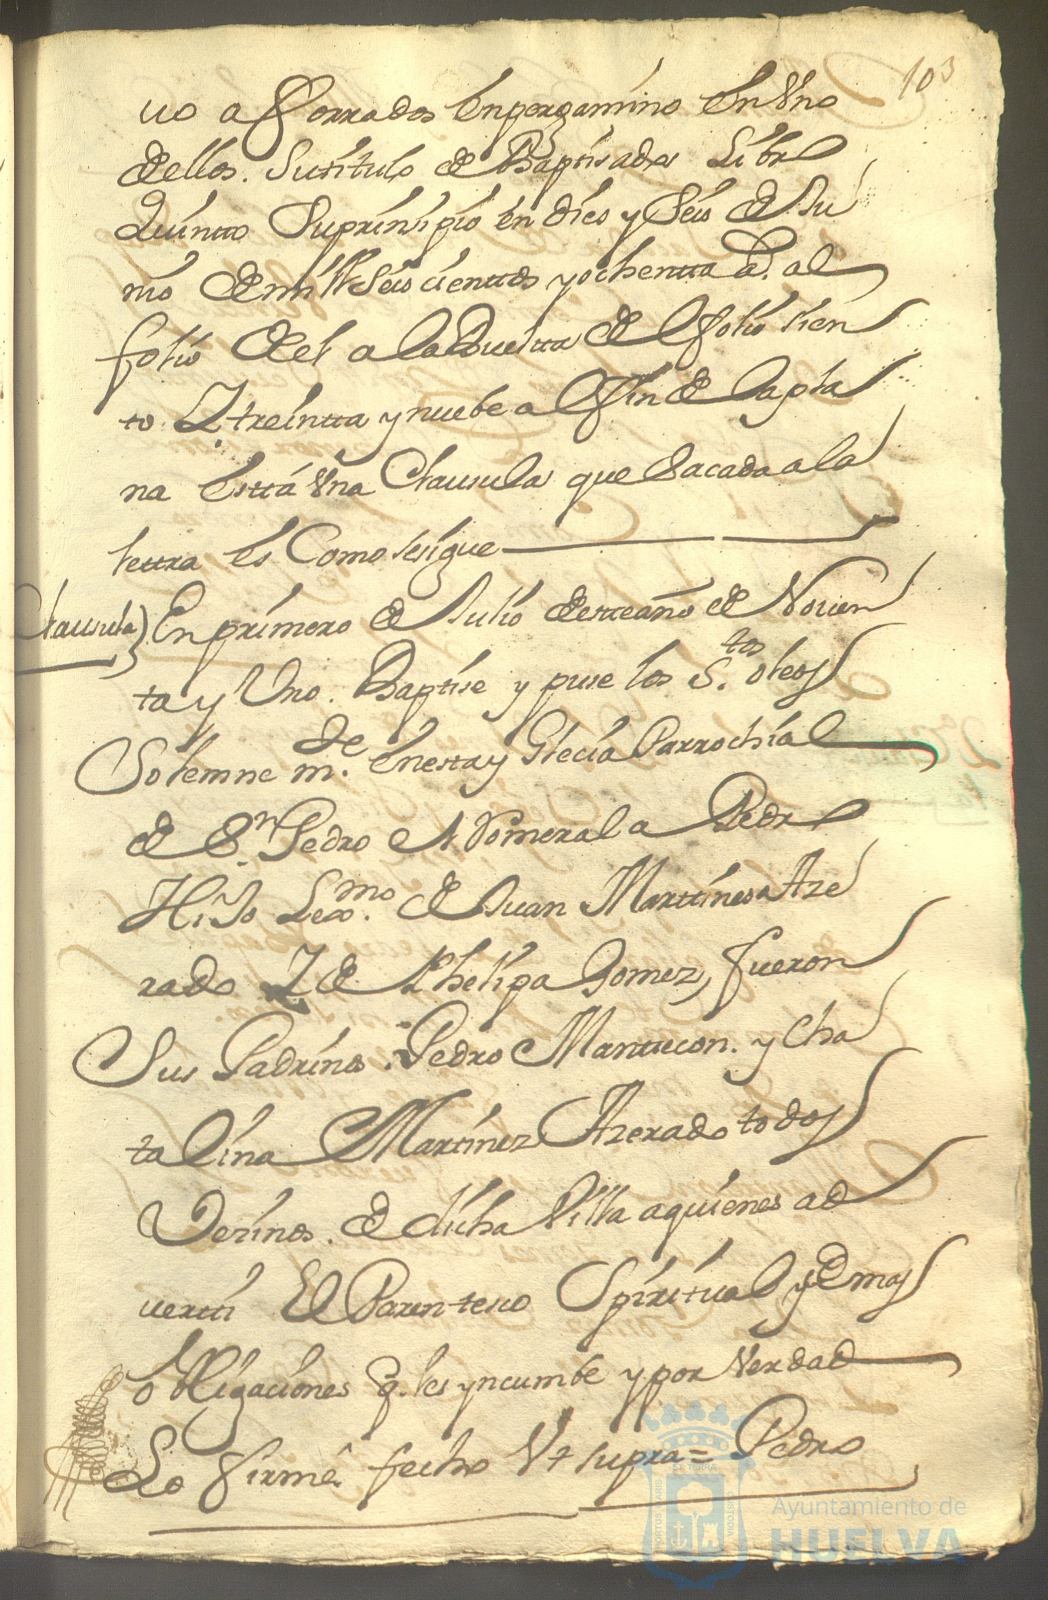 103
uo a forrados en pergamino en Vno
de ellos. Sutitulo de Baptisados Libro
Quintto Suprinsipio en dies y seis de Ju
nio de mill seiscienttos y ochentta a.s al
folio del a la Buelta del folio sien
to Y treintta y nuebe al fin de la pla
na esttá Vna Clausula que sacada a la
lettra es Como se sigue
Clausula) En primero de Julio de este año de Noven
ta y Vno. Baptise y puse los S.tos oleos
Solemnem.de en esta yglecia Parrochial
de S.n Pedro a Pedro
Hijo Lexmo. de Juan Marttines Aze
rado Y de Phelipa Gomez, fueron
Sus Padrinos. Pedro Mantticon. y Cha
talina Martinez Azerado todos
Vezinos. de dicha Villa a quienes ad
vertti El Parentesco Spiritual y demas
obligaciones q. les yncumbe y por Verdad
Lo firmé fecho Vt supra = Pedro
Ayuntamiento de
HUELVA